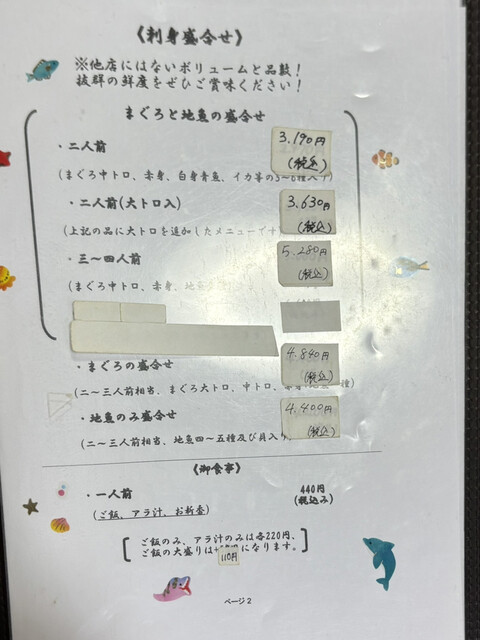 《刺身盛合せ》
※他店にはないボリュームと品数！
抜群の鮮度をぜひご賞味ください！
まぐろと地魚の盛合せ
・二人前 3.190円
(税込)
(まぐろ中トロ、赤身、白身青魚、イカ等の
・二人前(大トロ入) 3.630円
(税込)
(上記の品に大トロを追加したメニューです
・三〜四人前 5.280円
(税込)
(まぐろ中トロ、赤身、
・まぐろの盛合せ 4.840円
(税込)
(二〜三人前相当、まぐろ大トロ、中トロ、
・地魚のみ盛合せ 4.400円
(税込)
(二〜三人前相当、地魚四〜五種及び貝入り
《御食事》
・一人前 440円
(税込み)
(ご飯、アラ汁、お新香)
ご飯のみ、アラ汁のみは各220円、
ご飯の大盛りは+110円になります。
ページ2